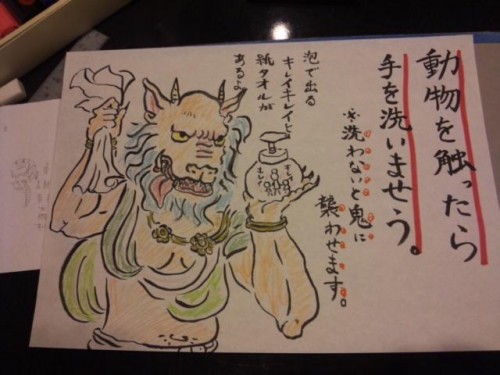 動物を触ったら
手を洗いませう。
※洗わないと鬼に
襲わせます。
泡で出る
キレイキレイと
紙タオルが
あるよ